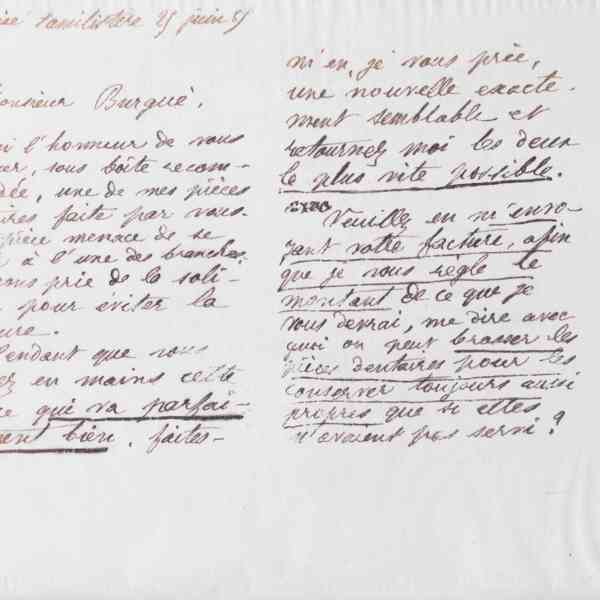 Familistère 25 juin 85
onsieur Burqué,
i l'honneur de vous
er, sous boîte recom-
dée, une de mes pièces
ires faite par vous.
pièce menace de se
à l'une des branches.
ous prie de la soli-
pour éviter la
ure.
endant que vous
ez en mains cette
ce qui va parfai-
ment bien, faites-
m'en, je vous prie,
une nouvelle exacte-
ment semblable et
retournez moi les deux
le plus vite possible.
Veuillez en m'envo-
yant votre facture, afin
que je vous règle le
montant de ce que je
vous devrai, me dire avec
quoi on peut brosser les
pièces dentaires pour les
conserver toujours aussi
propres que si elles
n'avaient pas servi?